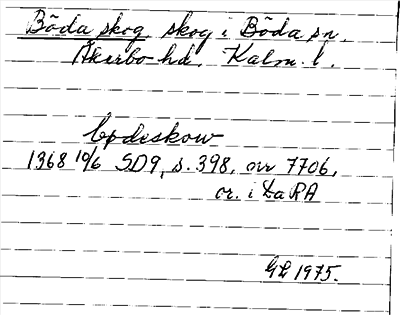 Böda skog. skog i Böda sn.
Åkerbo hd. Kalm. l.
bødeskow
1368 10/6 SD9, s. 398, nr 7706,
or. i La RA
GL 1975.